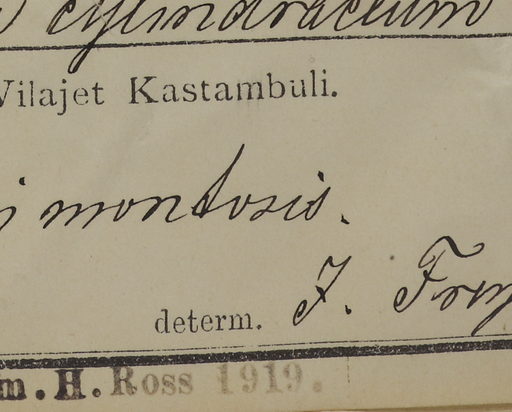 cylindraceum
Vilajet Kastambuli.
i montosis.
determ. J. Frey
m. H. Ross 1919.